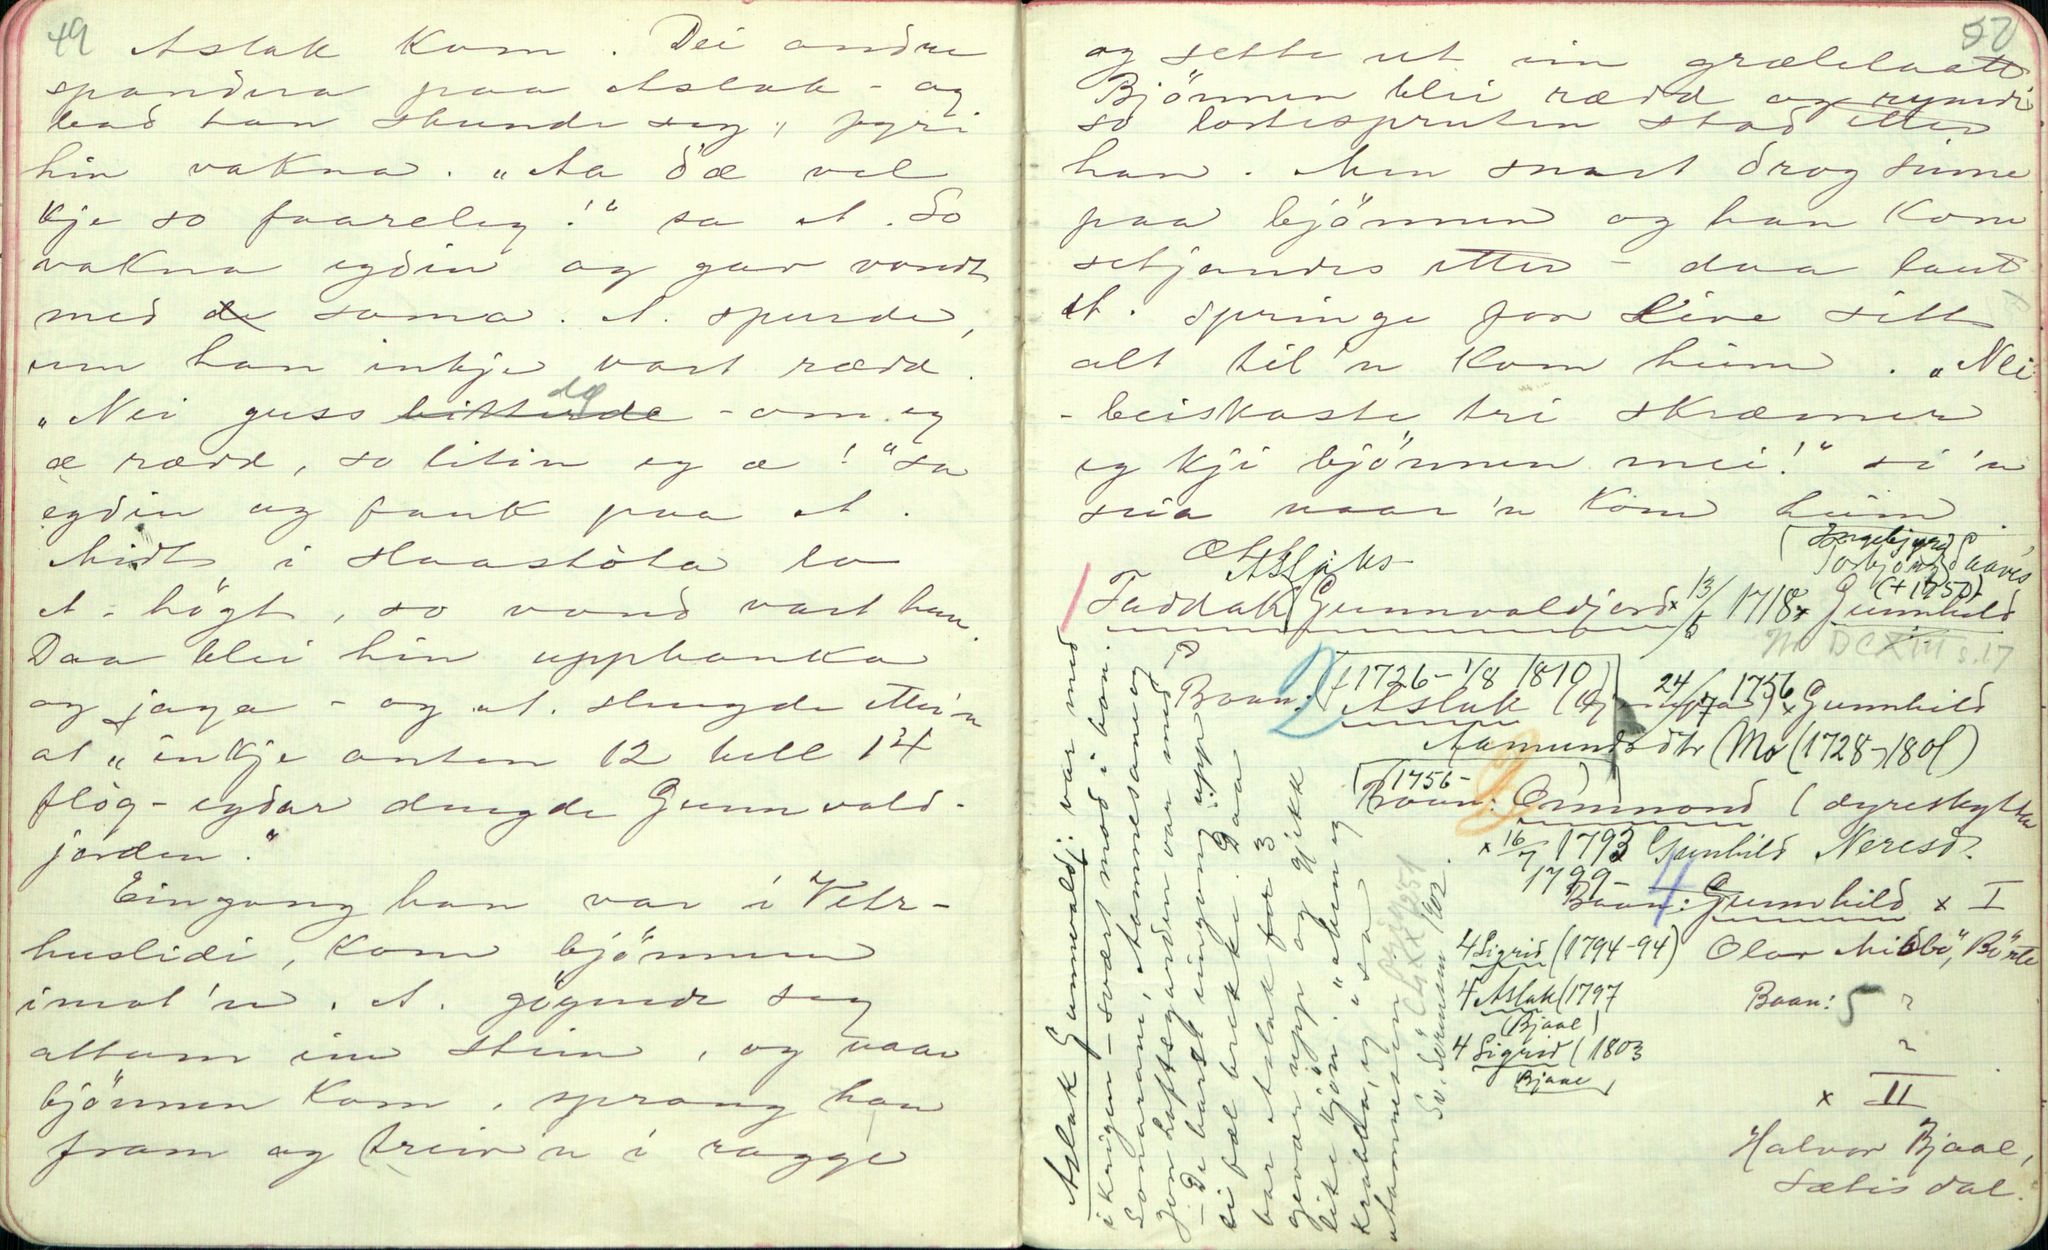 49
Aslak kom. Dei andre
spandera paa Aslak - og
bad han skunde seg, fyri
hin vakna. „Aa d'æ vel
kje so faareleg!" sa A. So
vakna egdin og gav vondt
med de sama. A. spurde,
um han inkje vart rædd.
„Nei guss bitterde - om eg
æ rædd, so litin eg æ!" sa
egdin og fauk paa A.
Midt i Haastöta lo
A - högt, so vond vart han.
Daa blei hin uppbanka
og jaga - og A. slengde etter'n
at „inkje anten 12 hell 14
flög - egdar dugde Gunnvald-
jorden."
Eingong han var i Vetr-
huslidi, kom bjönnen
imot'n. A. gögnde seg
attum ein stein, og naar
bjönnen kom, sprang han
fram og treiv'n i ragge
50
og sette ut ein grælelaatt
Bjönnen blei rædd og rymde
so lortespruten stod etter
han. Men snart drog sinne
paa bjönnen og han kom
setjandes etter - daa laut
A. springe for live sitt
alt til'n kom heim. „Nei
- beiskaste tri skræmer
eg kji bjönnen mei!" si'n
sia naar'n kom heim.
Ætt
Aslaks-
Taddak Gunnvaldjord x 13/5 1718 x Gunnhild
Ingebjørg
Torbjørg Saaves
(+ 1750)
DCXIII s. 17
Boan: 2 (1726 - 1/8 1810)
Aslak 24/7 1756 x Gunnhild
Aamundsdtr (Mo (1728-1801)
1756-
Boan: Ommond (dyreskyttar
x 16/7 1793 Gunhild Neresd.
1799-
Boan: 4 Gunnhild x I
4 Sigrid (1794-94) Olav Midbö, Börte
4 Aslak (1797 Boan: 5 ?
(Bjaae)
4 Sigrid (1803 ?
Bjaae
x II
Halvor Bjaae,
Sætisdal.
Aslak Gunnvaldj: var med
i krigen - svært mod i han.
Songarane, Mannesane og
Jon Loftsgarden var med
- De barst eingong uppe
ei fæl brekke. Daa
bar Aslak for 3
gevær upp og gjekk
like kjön. „Men eg
krabba, eg" sa
Sv. Sörensen 1902.